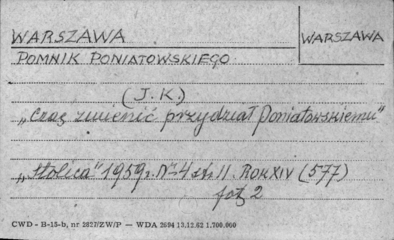 WARSZAWA
WARSZAWA
POMNIK PONIATOWSKIEGO
(J.K.)
„Czas zmienić przydział Poniatowskiemu"
„Stolica" 1959 r. Nr 4 str. 11 Rok XIV (577)
fot 2
CWD - B-15-b, nr 2827/ZW/P — WDA 2694 13.12.62 1.700.000